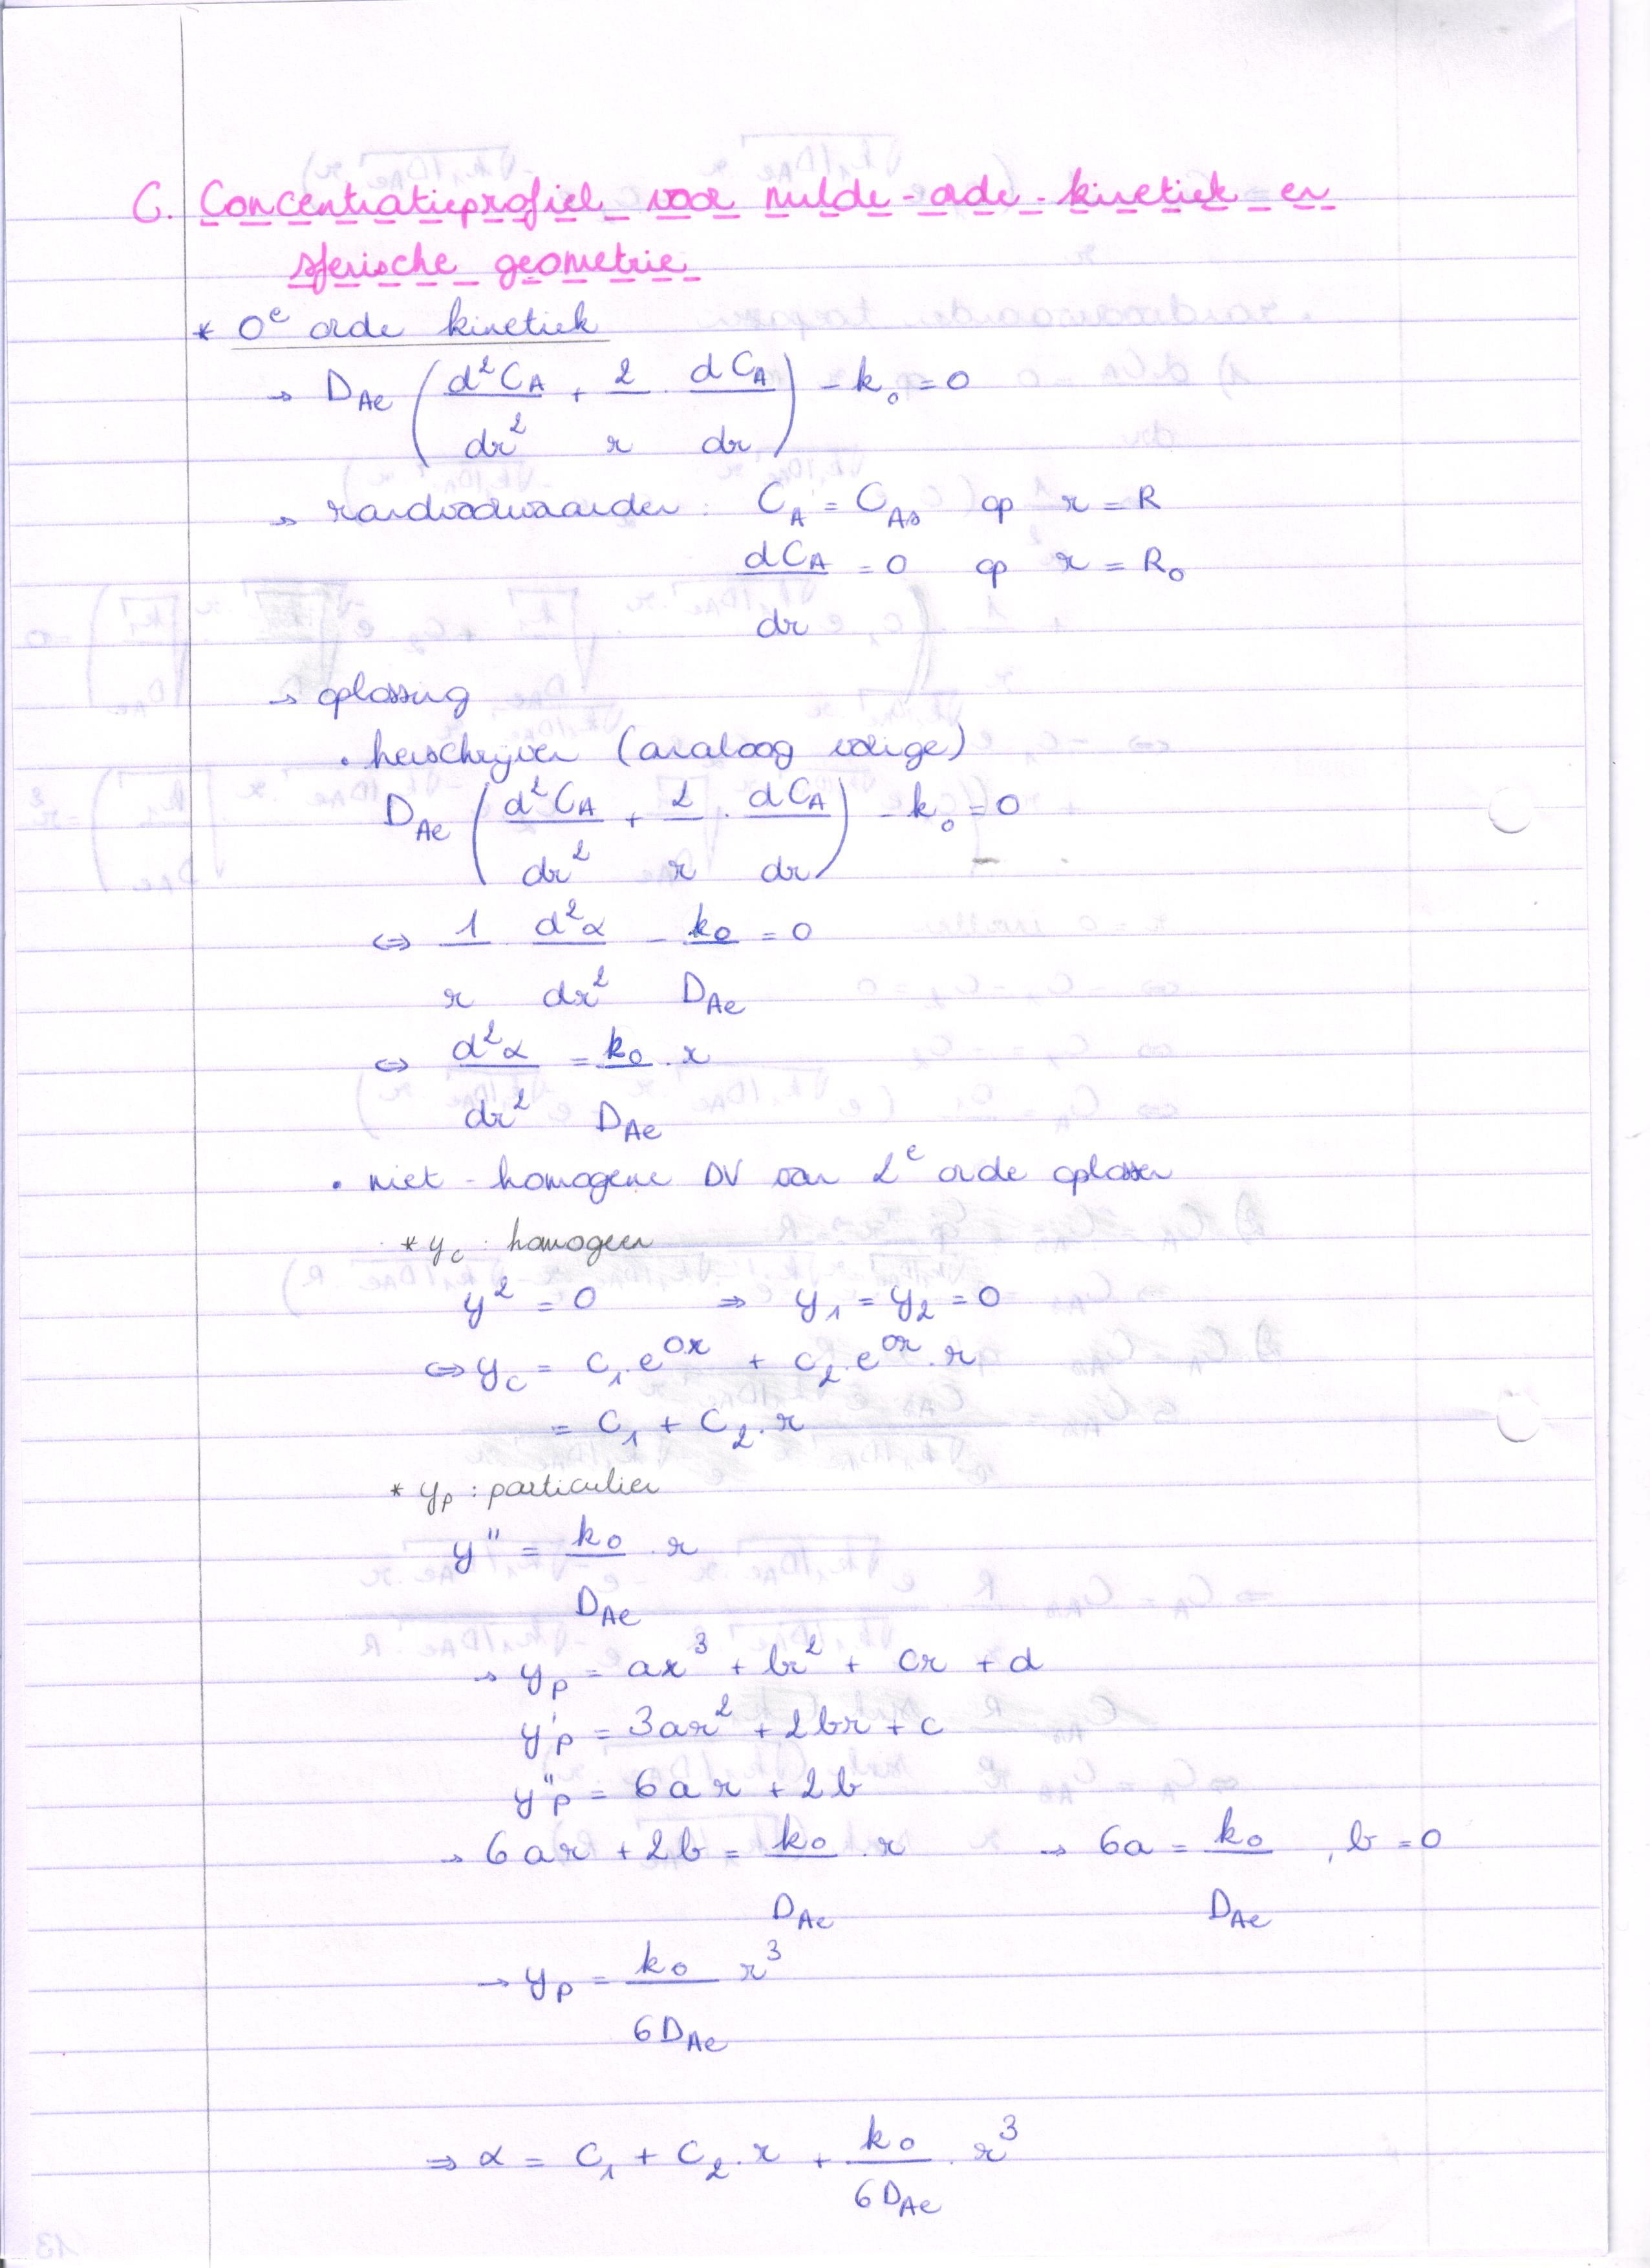 C. Concentratieprofiel voor nulde-orde-kinetiek en
sferische geometrie
* 0e orde kinetiek
→ D_Ae (d²C_A/dr² + 2/r · dC_A/dr) - k₀ = 0
→ randvoorwaarden : C_A = C_As op r = R
dC_A/dr = 0 op r = R₀
→ oplossing
• herschrijven (analoog vorige)
D_Ae (d²C_A/dr² + 2/r · dC_A/dr) - k₀ = 0
⇔ 1/r d²α/dr² - k₀/D_Ae = 0
⇔ d²α/dr² = k₀/D_Ae · r
• niet-homogene DV van 2e orde oplossen
* y_c : homogeen
y² = 0 ⇒ y₁ = y₂ = 0
⇔ y_c = c₁.e^0r + c₂.e^0r.r
= C₁ + C₂.r
* y_p : particulier
y'' = k₀/D_Ae · r
→ y_p = ar³ + br² + cr + d
y'_p = 3ar² + 2br + c
y''_p = 6ar + 2b
→ 6ar + 2b = k₀/D_Ae · r → 6a = k₀/D_Ae , b = 0
→ y_p = k₀/6D_Ae r³
⇒ α = C₁ + C₂.r + k₀/6D_Ae · r³